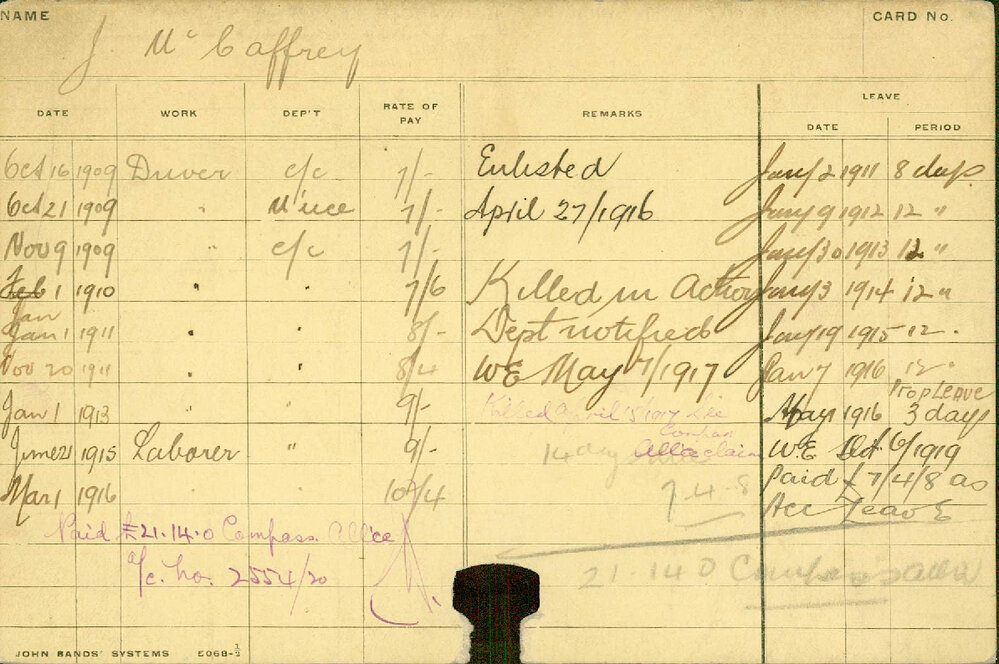 NAME
CARD No.
J. McCaffrey
DATE WORK DEP'T RATE OF PAY REMARKS LEAVE
DATE PERIOD
Oct 16 1909 Driver c/c 7/- Enlisted Jany 2 1911 8 days
Oct 21 1909 " M'nce 7/- April 27/1916 Jany 9 1912 12 "
Nov 9 1909 " c/c 7/- Jany 30 1913 12 "
Feb 1 1910 " " 7/6 Killed in Action Jany 3 1914 12 "
Jan
Jan 1 1911 " " 8/- Dept notified Jany 19 1915 12 "
Nov 20 1911 " " 8/4 WE May 7/1917 Jan 7 1916 12 "
Prop Leave
Jan 1 1913 " " 9/- Killed April 15/1917 See May 1916 3 days
Compass
June 21 1915 Laborer " 9/- 14 day Allce claim WE Oct 6/1919
Mar 1 1916 " " 10/4 7.4.8 Paid £7/4/8 as
Acc Leave
Paid £21.14.0 Compass. Allce
a/c. No. 2554/20
21.14.0 Compass allce
JOHN SANDS' SYSTEMS E068-½